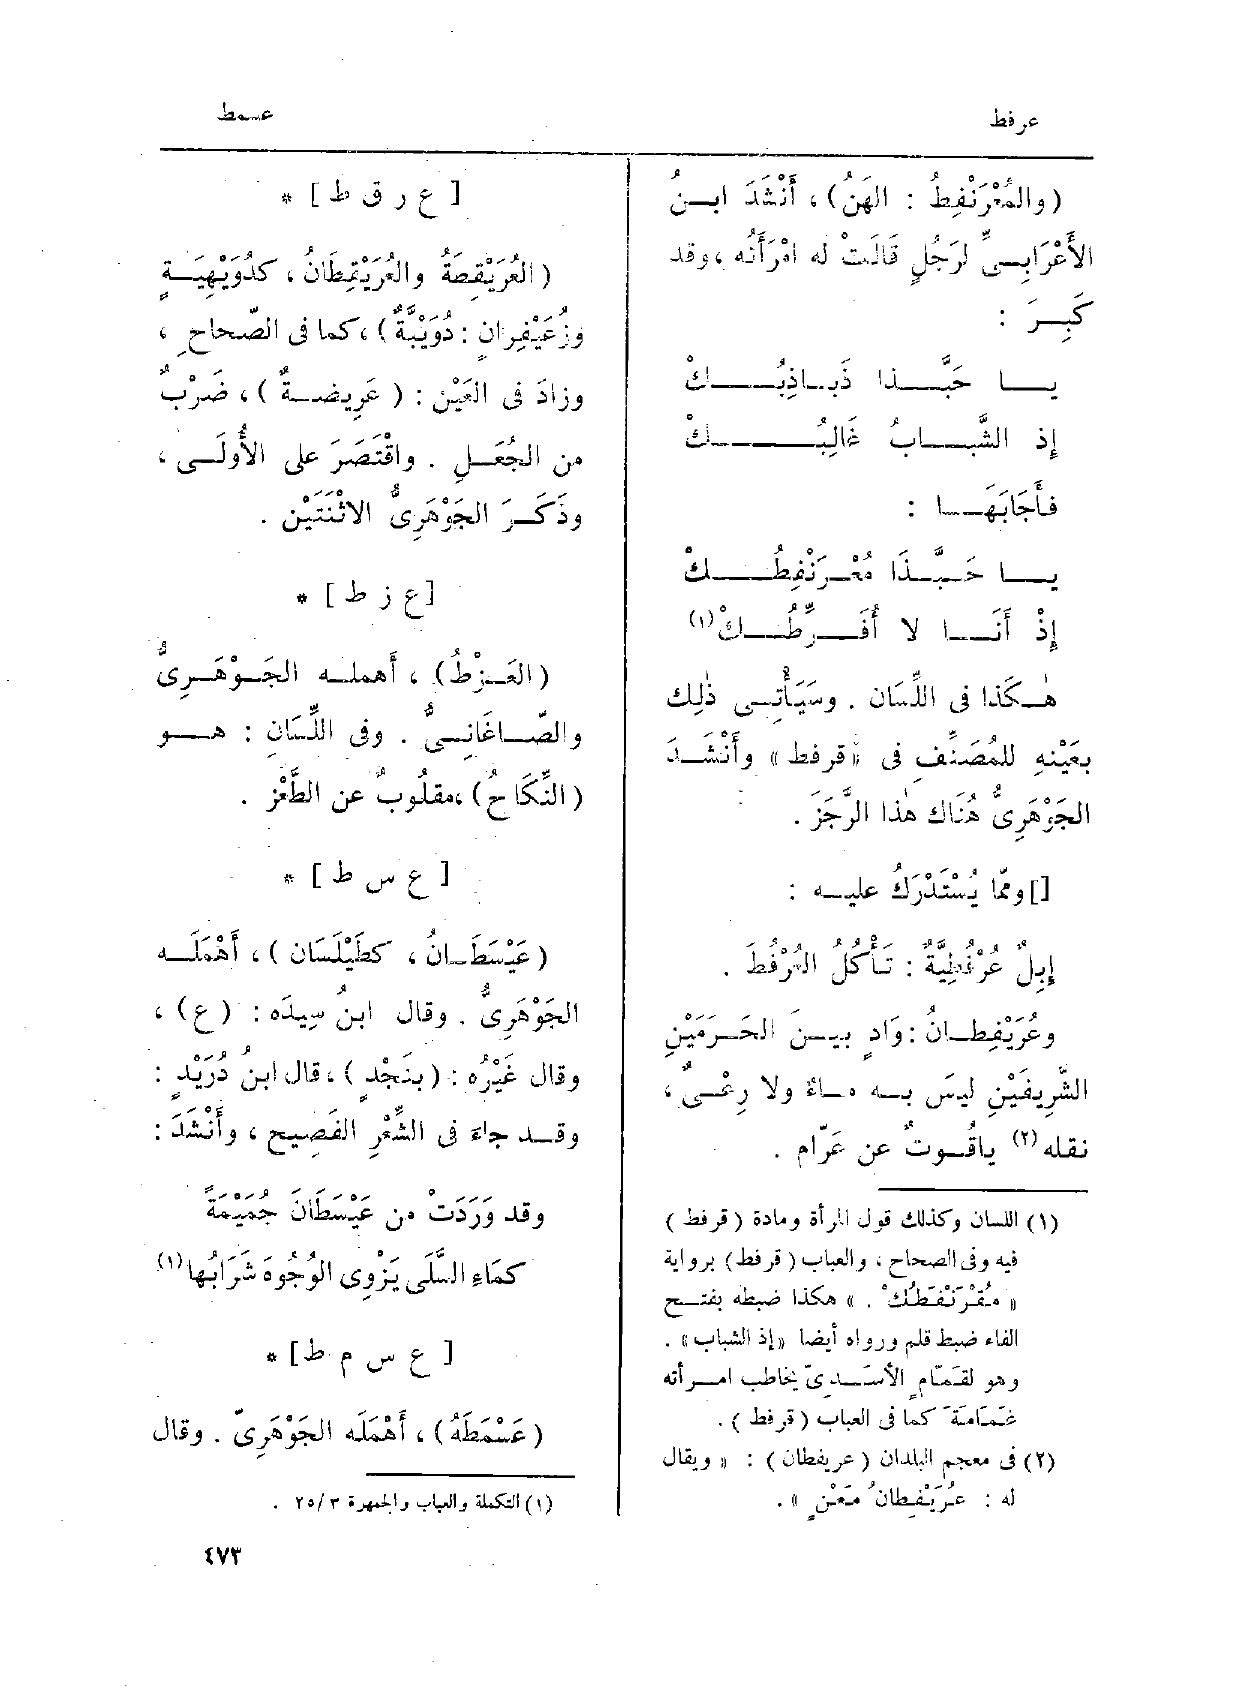 عرفط
عسمط
(والمُعْرَنْفِطُ : الهَنُ) ، أَنْشَدَ ابــنُ
الأَعْرَابِــىِّ لرَجُلٍ قَالَتْ له امْرَأَتُه ، وقد
كَبِــرَ :
يـــا حَبَّـــذا ذَبـاذِبُـــكْ
إذ الشَّبـــابُ غَالِبُـــكْ
فأَجَابَهَــا :
يـــا حَبَّــذَا مُعْـرَنْفِطُـــكْ
إذْ أَنَـــا لا أُفَـــرِّطُـــكْ(١)
هٰـكَذا فى اللِّسَان . وسَيَأْتِــى ذٰلِك
بعَيْنِهِ للمُصَنِّفِ فى «قرفط» وأَنْشَــدَ
الجَوْهَرِىُّ هُنَاك هٰذا الرَّجَزَ .
[]وممّا يُسْتَدْرَكُ عليــه :
إِبِلٌ عُرْفُطِيَّةٌ : تَـأْكُلُ العُرْفُطَ .
وعُرَيْفِطــانُ : وَادٍ بيــنَ الحَــرَمَيْنِ
الشَّرِيفَيْنِ ليسَ بــه مـاءٌ ولا رِعْـىٌ ،
نقله (٢) ياقُــوتٌ عن عَرّام .
(١) اللسان وكذلك قول المرأة ومادة (قرفط )
فيه وفى الصحاح ، والعباب (قرفط) برواية
« مُقْرَنْفَطُكْ . » هكذا ضبطه بفتــح
الفاء ضبط قلم ورواه أيضا «إذ الشباب» .
وهو لقَمّامٍ الأسَــدِىّ يخاطب امــرأته
غَمَامَةَ كما فى العباب (قرفط ) .
(٢) فى معجم البلدان (عريفطان ) : « ويقال
له : عُرَيْفِطانُ مَعْنٍ » .
[ ع ر ق ط ] *
(العُرَيْقِصَةُ والعُرَيْقِطَانُ ، كدُوَيْهِيَــةٍ
وزُعَيْفِرانٍ : دُوَيْبَّةٌ) ، كما فى الصّحاحِ ،
وزادَ فى العَيْن : ( عَرِيضــةٌ ) ، ضَرْبٌ
من الجُعَــلِ . واقْتَصَرَ على الأُولَــى ،
وذَكَــرَ الجَوْهَرِىُّ الاثْنَتَيْن .
[ع ز ط ] *
(العَــزْطُ) ، أَهملــه الجَــوْهَــرِىُّ
والصّــاغَانِــىُّ . وفى اللِّسَانِ : هــو
(النِّكَاحُ) ، مقلُوبٌ عن الطَّعْز .
[ ع س ط ] *
(عَيْسَطَـانُ ، كطَيْلَسَان ) ، أَهْمَلَــه
الجَوْهَرِىُّ . وقال ابنُ سِيدَه : (ع) ،
وقال غَيْرُه : (بنَجْدٍ ) ، قال ابنُ دُرَيْدٍ :
وقــد جاءَ فى الشِّعْرِ الفَصِيحِ ، وأَنْشَدَ :
وقد وَرَدَتْ من عَيْسَطَانَ جُمَيْمَةً
كمَاءِ السَّلَى يَزْوِى الوُجُوهَ شَرَابُها(١)
[ ع س م ط] *
(عَسْمَطَهُ) ، أَهْمَلَه الجَوْهَرِىّ . وقال
(١) التكملة والعباب والجمهرة ٣ /٢٥ .
٤٧٣